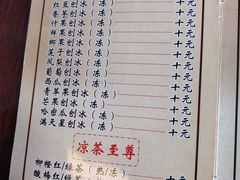 红豆刨冰(冻) 十元
香芋刨冰(冻) 十元
什果刨冰(冻) 十元
鲜果刨冰(冻) 十元
椰果刨冰(冻) 十元
莲子刨冰(冻) 十元
凤梨刨冰(冻) 十元
葡萄刨冰(冻) 十元
西瓜刨冰(冻) 十元
青苹果刨冰(冻) 十元
哈密瓜刨冰(冻) 十元
芒果刨冰(冻) 十元
满天星刨冰(冻) 十元
凉茶至尊
柳橙红/绿茶(热/冻)
酸梅红/绿茶